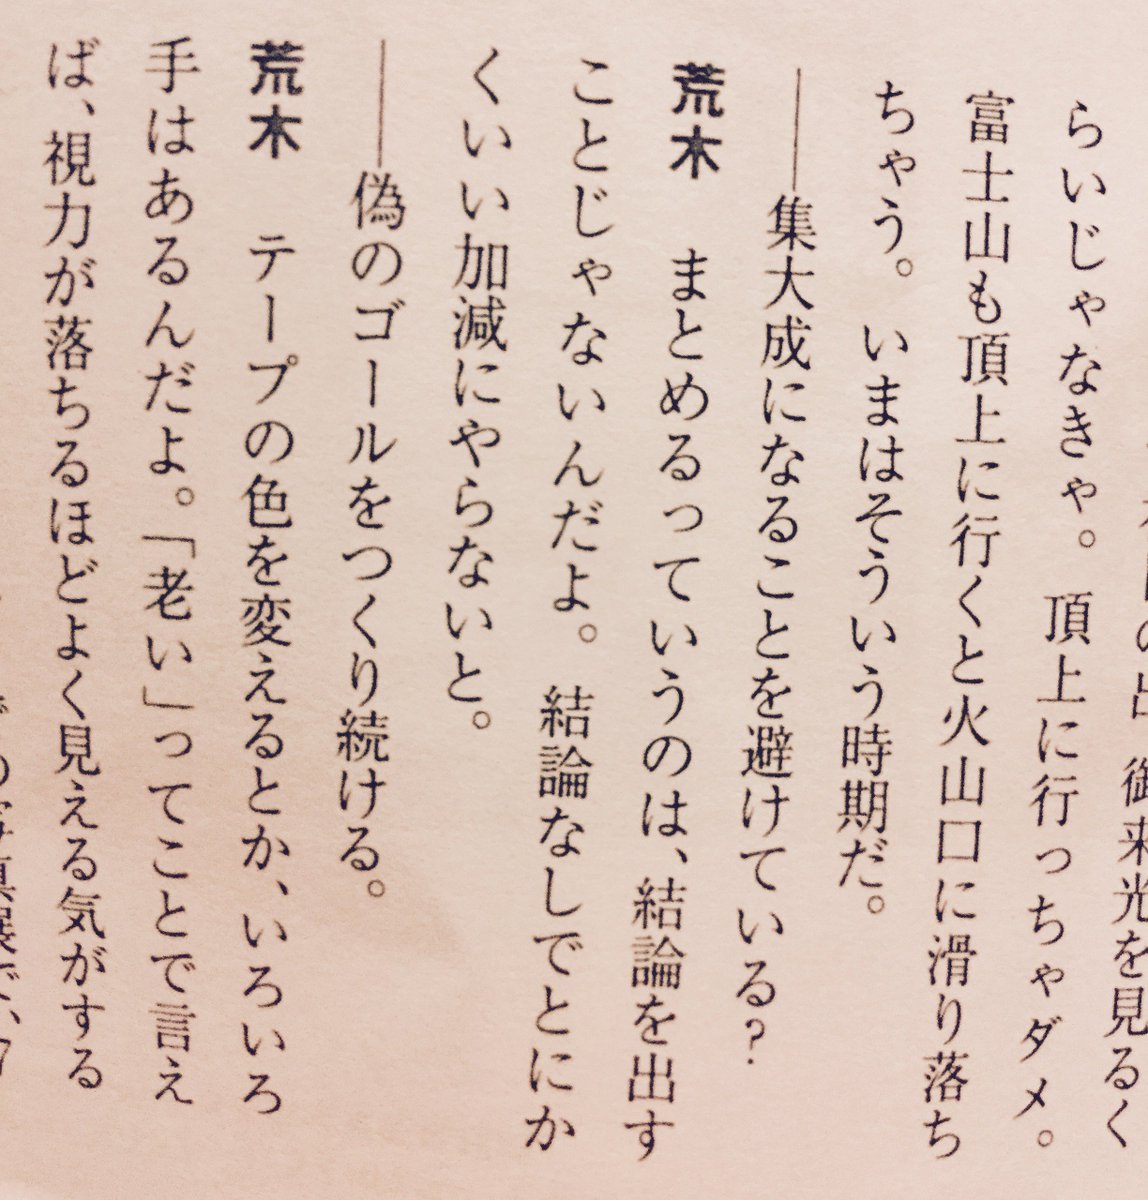 御来光を見るく
らいじゃなきゃ。頂上に行っちゃダメ。
富士山も頂上に行くと火山口に滑り落ち
ちゃう。いまはそういう時期だ。
――集大成になることを避けている？
荒木　まとめるっていうのは、結論を出す
ことじゃないんだよ。結論なしでとにか
くいい加減にやらないと。
――偽のゴールをつくり続ける。
荒木　テープの色を変えるとか、いろいろ
手はあるんだよ。「老い」ってことで言え
ば、視力が落ちるほどよく見える気がする